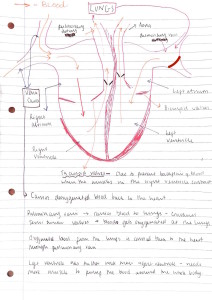 → = Blood
LUNG(S)
pulmonary artery
Aorta
pulmonary vein
Vena Cava
Left atrium
Right atrium
Bicuspid valve
Left ventricle
Right ventricle
Tricuspid valve - due to prevent backflow of blood
when the muscles in the right ventricle contract
Carries deoxygenated blood back to the heart
Pulmonary vein
Semi lunar valve - blood gets oxygenated at the lungs
Oxygenated blood from the lungs is carried back to the heart
through pulmonary vein
Left ventricle has thicker wall than right ventricle - needs
more muscle to pump the blood around the whole body.